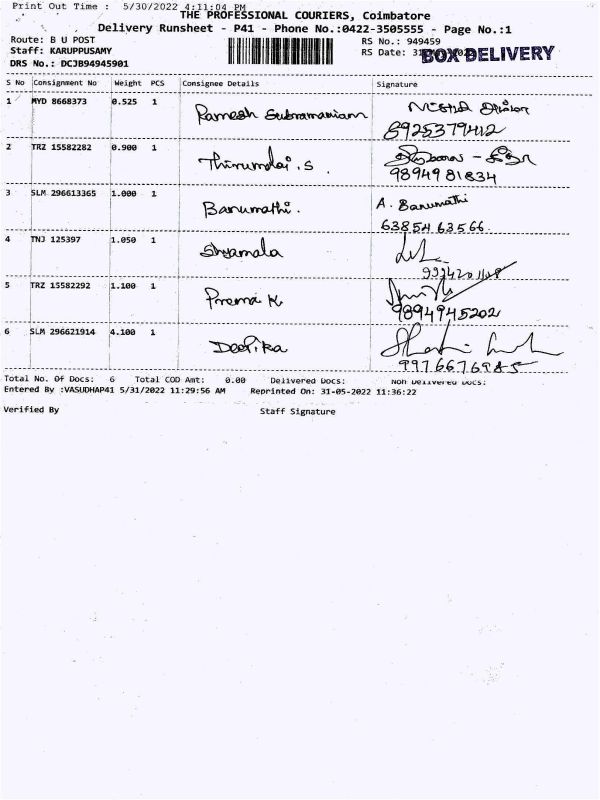 Print Out Time : 5/30/2022 4:11:04 PM
THE PROFESSIONAL COURIERS, Coimbatore
Delivery Runsheet - P41 - Phone No.:0422-3505555 - Page No.:1
Route: B U POST
RS No.: 949459
Staff: KARUPPUSAMY
RS Date: 31
BOX DELIVERY
DRS No.: DCJB94945901
S No Consignment No Weight PCS Consignee Details Signature
1 MYD 8668373 0.525 1 Ramesh Subramaniam
8925379412
2 TRZ 15582282 0.900 1 Thirumalai . S
9894981834
3 SLM 296613365 1.000 1 Banumathi . A. Banumathi
6385463566
4 TNJ 125397 1.050 1 Shyamala
5 TRZ 15582292 1.100 1 Prema K
9894945202
6 SLM 296621914 4.100 1 Deepika
9976676985
Total No. Of Docs: 6 Total COD Amt: 0.00 Delivered Docs: Non Delivered Docs:
Entered By :VASUDHAP41 5/31/2022 11:29:56 AM Reprinted On: 31-05-2022 11:36:22
Verified By Staff Signature